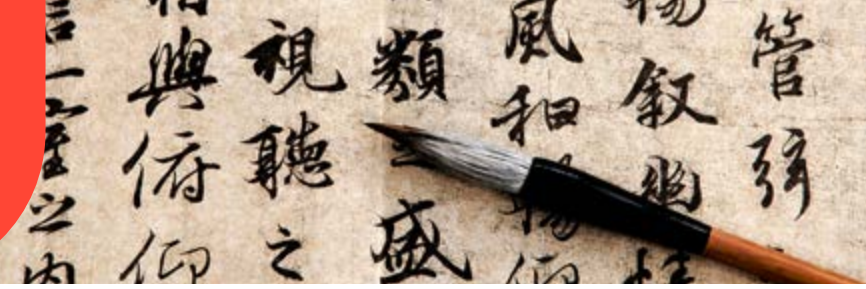 管弦
暢叙幽情
風和暢仰
類之盛
視聽之
相與俯仰
言一室之内